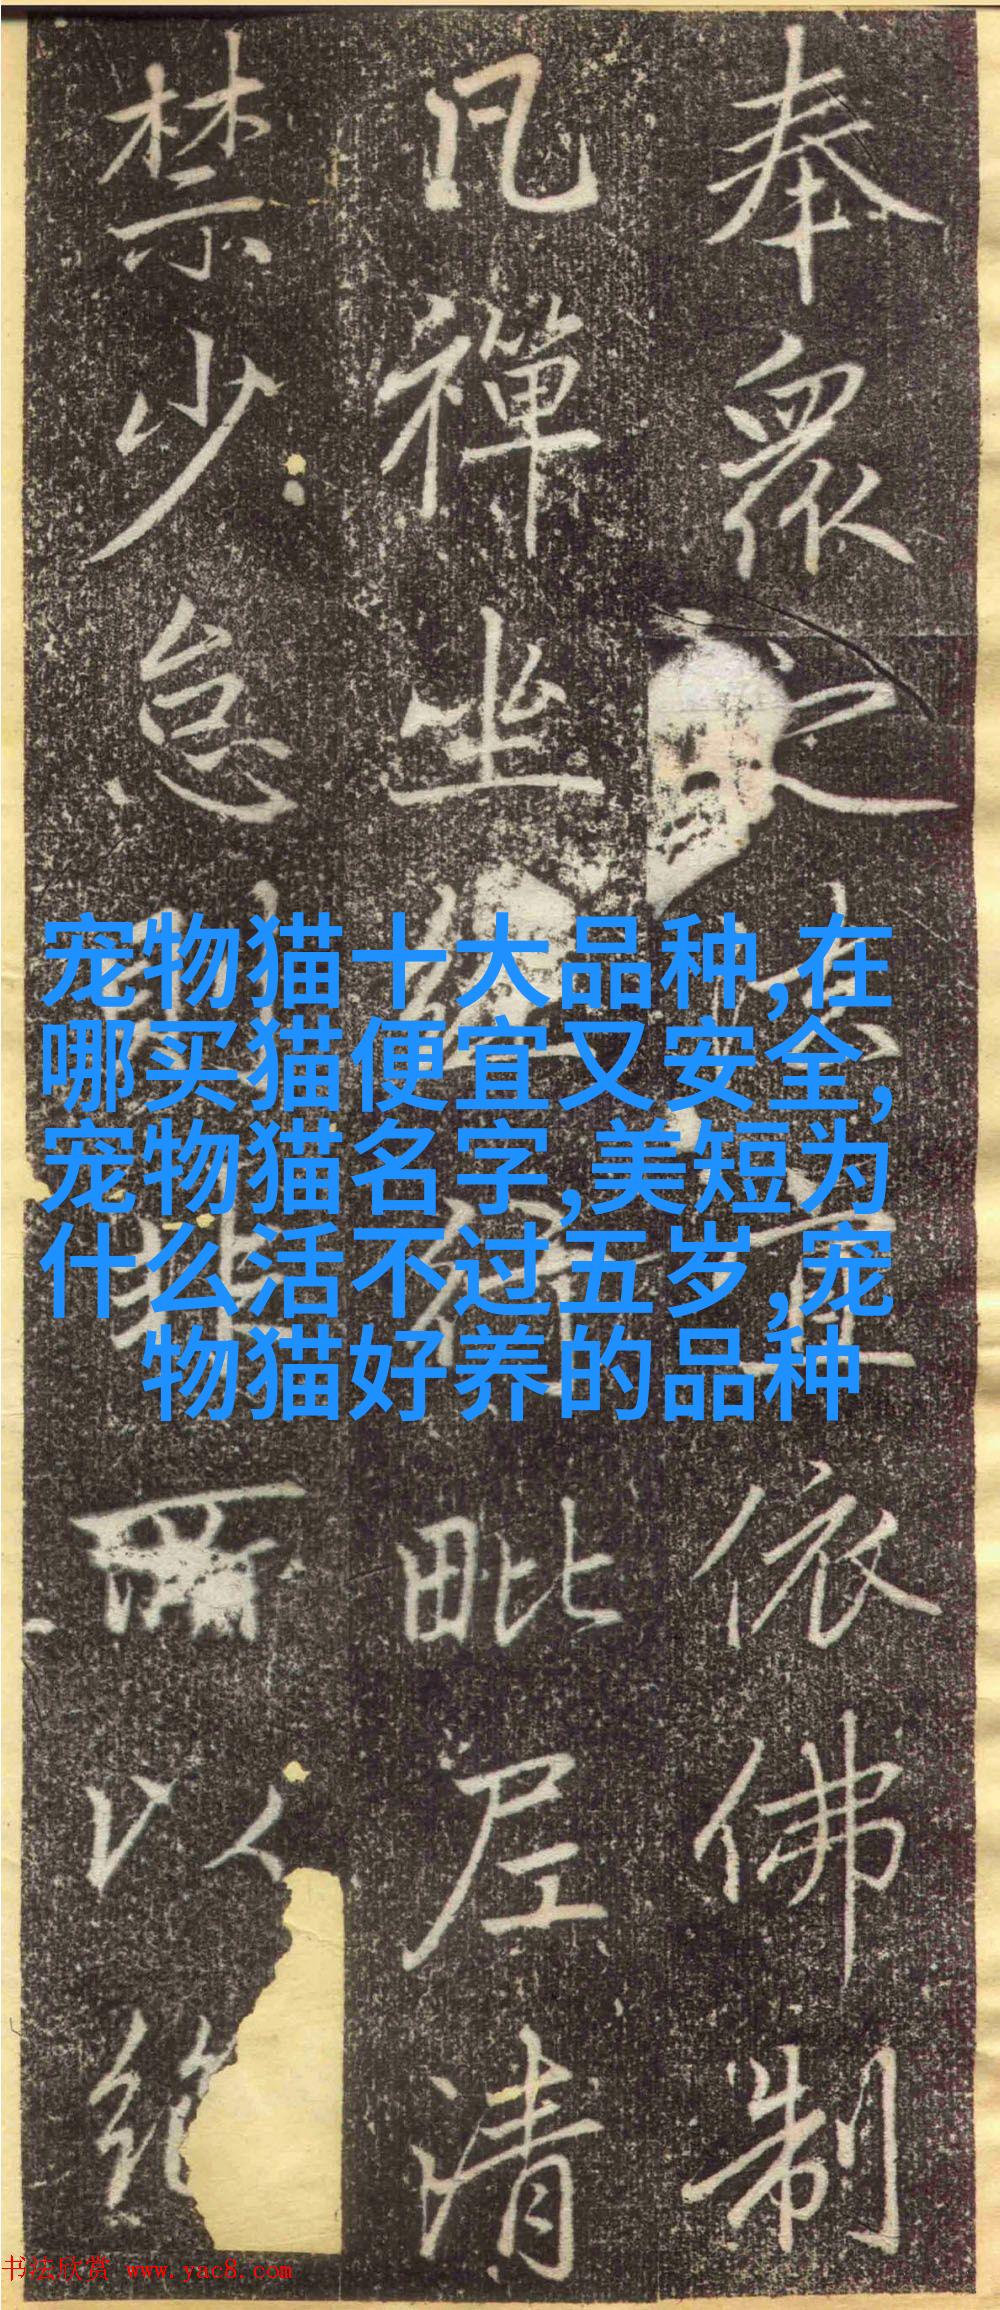 奉衆之
依佛制
凡禪坐
毗尼清
禁少怠
以絕
宠物猫十大品种,在
哪买猫便宜又安全,
宠物猫名字,美短为
什么活不过五岁,宠
物猫好养的品种
书法欣赏 www.yac8.com